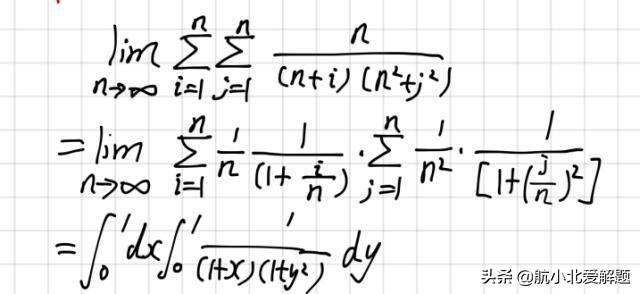 lim n→∞ ∑ i=1 n ∑ j=1 n n/((n+i)(n²+j²))
= lim n→∞ ∑ i=1 n 1/n 1/(1+i/n) · ∑ j=1 n 1/n² · 1/[1+(j/n)²]
= ∫₀¹ dx ∫₀¹ 1/((1+x)(1+y²)) dy
头条 @航小北爱解题